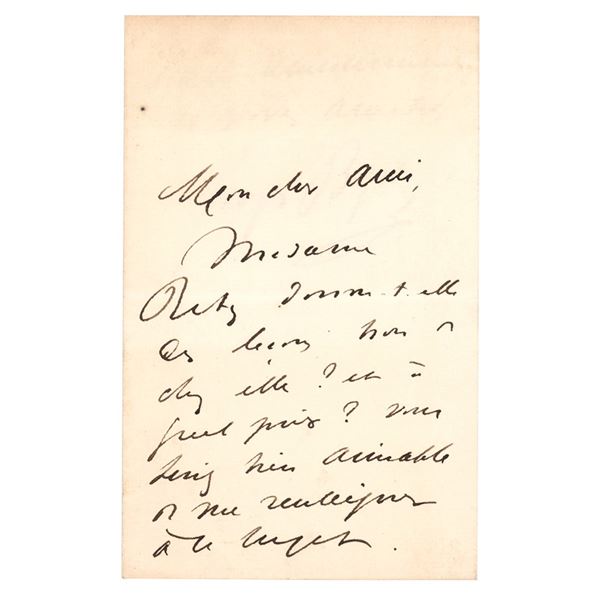 Mon cher Ami,
Madame
donne-t-elle
des leçons hors de
chez elle ? et à
quel prix ? vous
seriez bien aimable
de me renseigner
à ce sujet.